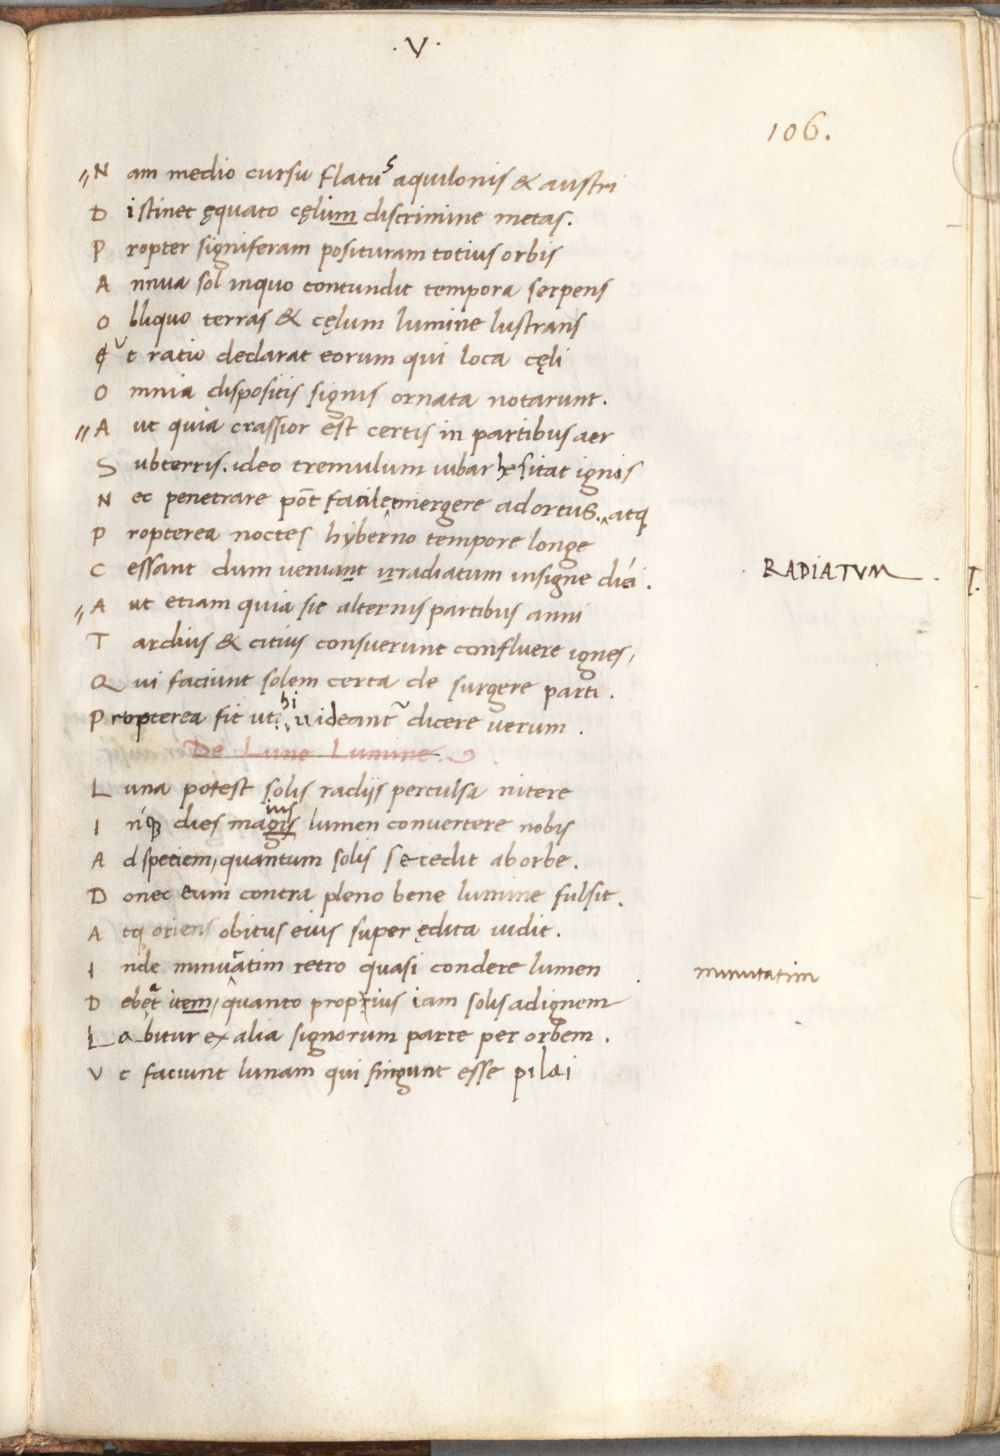 · V ·
106.
N am medio cursu flatus aquilonis & austri
D istinet ęquato cęlum discrimine metas.
P ropter signiferam posituram totius orbis
A nnua sol inquo contundit tempora serpens
O bliquo terras & cęlum lumine lustrans
Vt ratio declarat eorum qui loca cęli
O mnia dispositis signis ornata notarunt.
A ut quia crassior est certis in partibus aer
S ubterris. ideo tremulum iubar hesitat ignis
N ec penetrare pot̄ facile, emergere ad ortus. atq
P ropterea noctes hyberno tempore longe
C essant dum veniant irradiatum insigne diei. RADIATVM
A ut etiam quia sic alternis partibus anni
T ardius & citius consuerunt confluere ignes,
Q ui faciunt solem certa de surgere parti.
P ropterea fit uti hi uideant dicere verum.
De Lune Lumine.
L una potest solis radiis perculsa nitere
I nq dies magis ius lumen convertere nobis
A d speciem, quantum solis secedit ab orbe.
D onec eum contra pleno bene lumine fulsit.
A tq oriens obitus eius super ędita uidit.
I nde minuatim retro quasi condere lumen minutatim
D ebet item, quanto proprius iam solis adignem
L abitur ex alia signorum parte per orbem.
V t faciunt lunam qui fingunt esse pilai